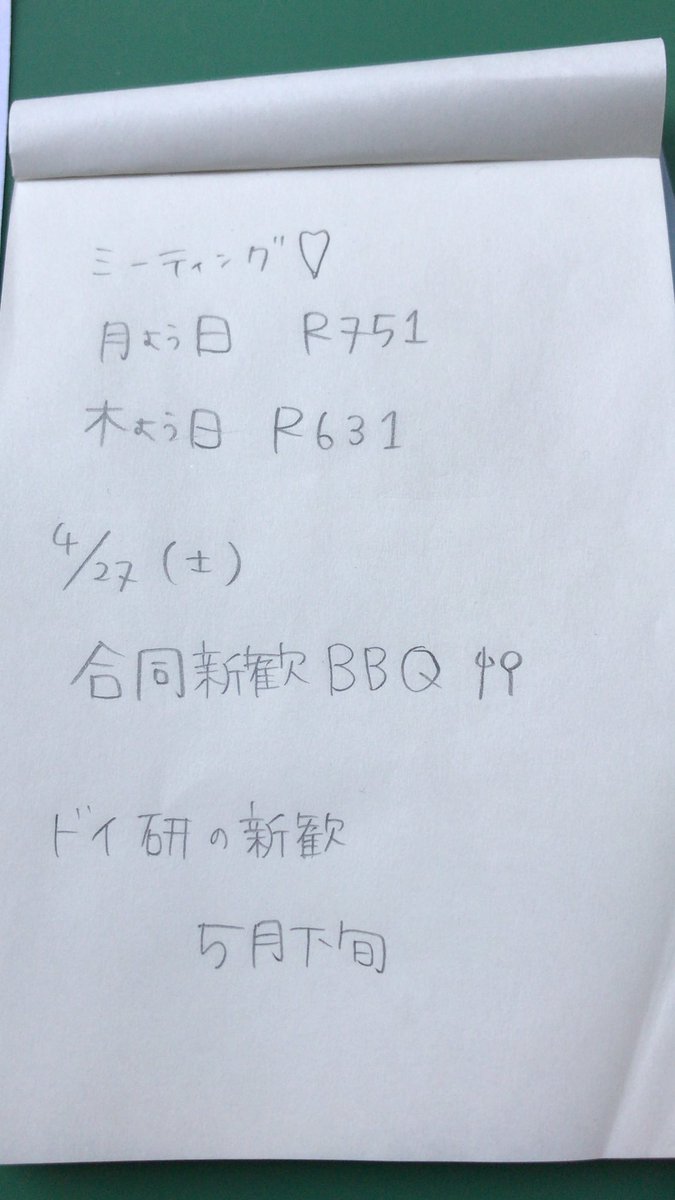 ミーティング♡
月よう日 R751
木よう日 R631
4/27 (土)
合同新歓BBQ
ドイ研の新歓
5月下旬